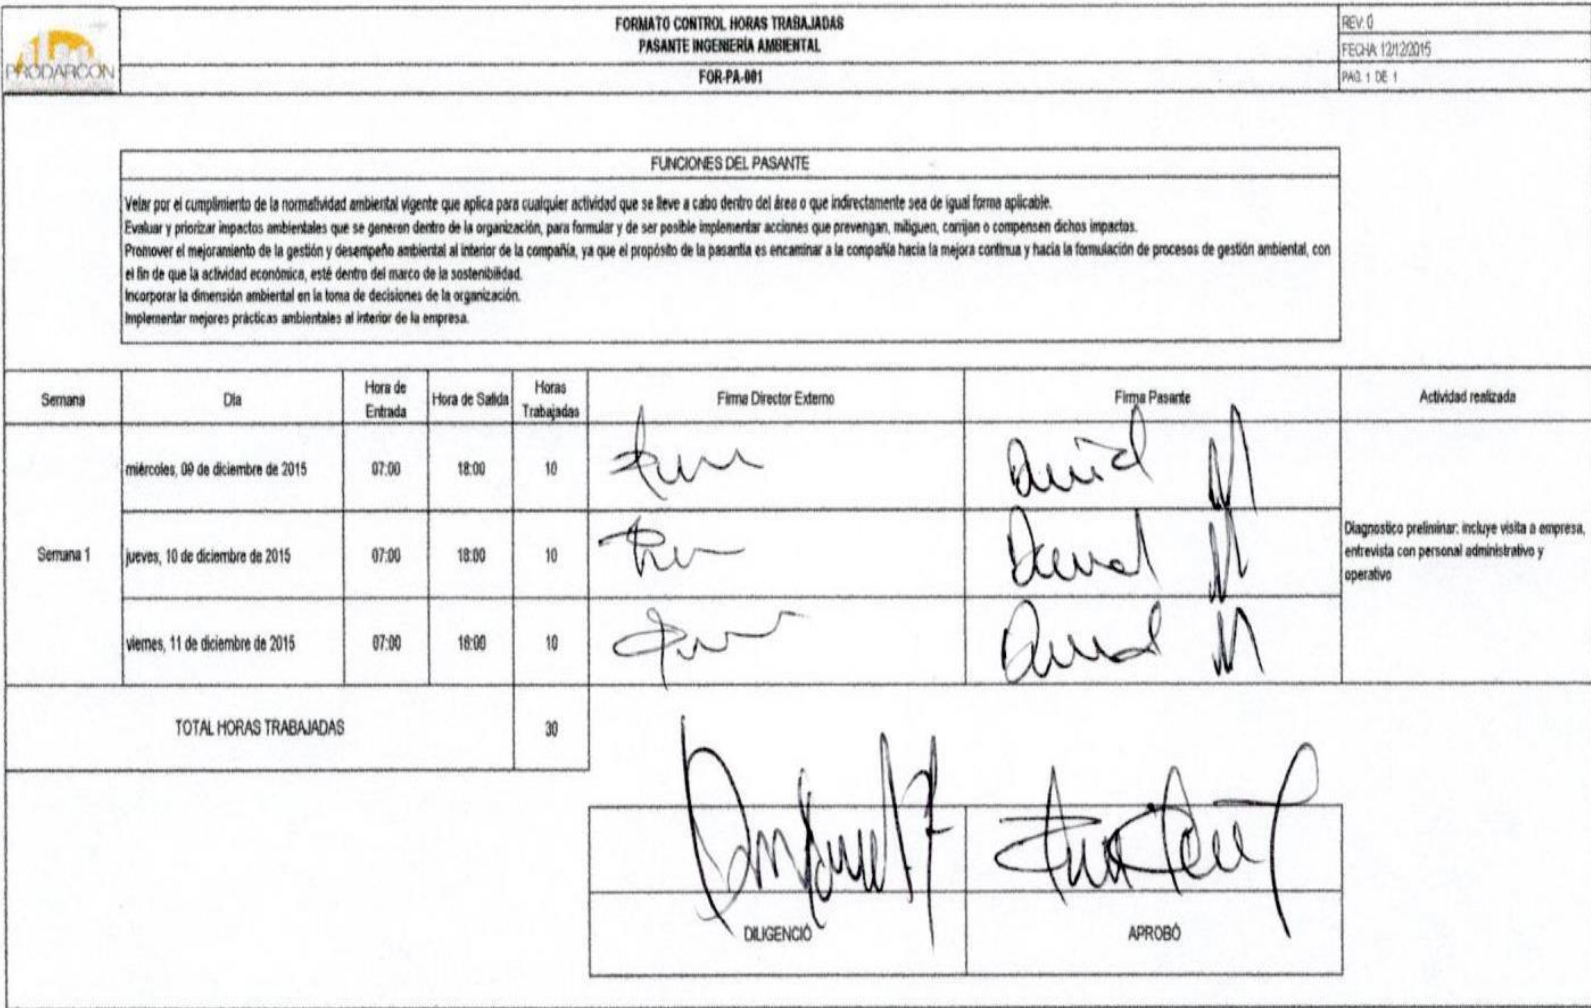 PRODARCON
FORMATO CONTROL HORAS TRABAJADAS
PASANTE INGENIERÍA AMBIENTAL
FOR-PA-001
REV: 0
FECHA 12/12/2015
PAG. 1 DE 1
FUNCIONES DEL PASANTE
Velar por el cumplimiento de la normatividad ambiental vigente que aplica para cualquier actividad que se lleve a cabo dentro del área o que indirectamente sea de igual forma aplicable.
Evaluar y priorizar impactos ambientales que se generen dentro de la organización, para formular y de ser posible implementar acciones que prevengan, mitiguen, corrijan o compensen dichos impactos.
Promover el mejoramiento de la gestión y desempeño ambiental al interior de la compañía, ya que el propósito de la pasantía es encaminar a la compañía hacia la mejora continua y hacia la formulación de procesos de gestión ambiental, con
el fin de que la actividad económica, esté dentro del marco de la sostenibilidad.
Incorporar la dimensión ambiental en la toma de decisiones de la organización.
Implementar mejores prácticas ambientales al interior de la empresa.
Semana Día Hora de Entrada Hora de Salida Horas Trabajadas Firma Director Externo Firma Pasante Actividad realizada
Semana 1
miércoles, 09 de diciembre de 2015 07:00 18:00 10 David M
jueves, 10 de diciembre de 2015 07:00 18:00 10 David M
viernes, 11 de diciembre de 2015 07:00 18:00 10 David M
Diagnostico preliminar: incluye visita a empresa,
entrevista con personal administrativo y
operativo
TOTAL HORAS TRABAJADAS 30
DILIGENCIÓ APROBÓ